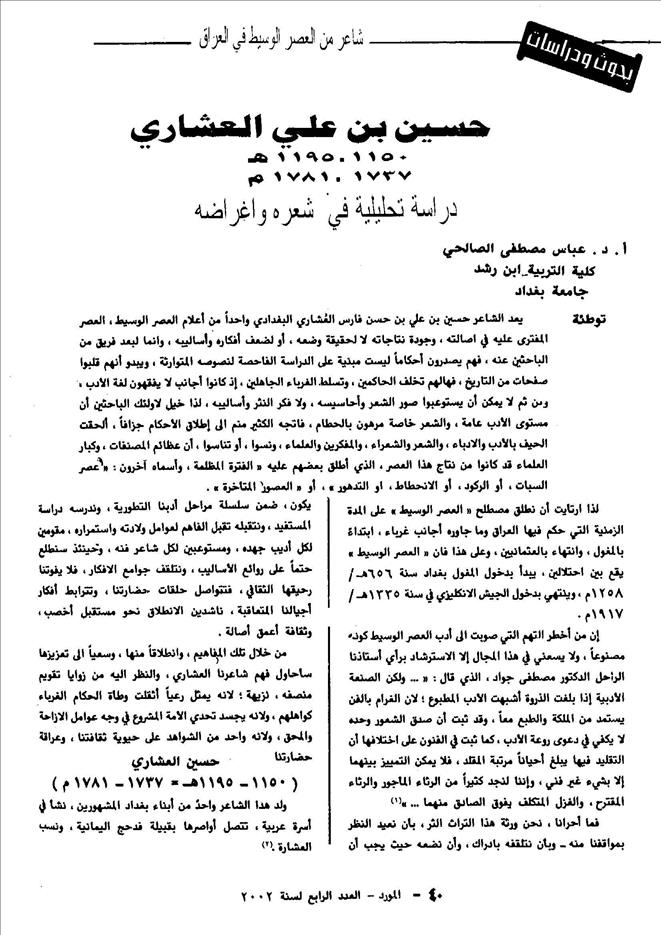 شاعر من العصر الوسيط في العراق
بحوث ودراسات
حسين بن علي العشاري
١١٥٠ـ١١٩٥ هـ
١٧٣٧ـ١٧٨١ م
دراسة تحليلية في شعره واغراضه
أ . د . عباس مصطفى الصالحي
كلية التربية ـ ابن رشد
جامعة بغداد
توطئة
يعد الشاعر حسين بن علي بن حسن فارس العُشاري البغدادي واحداً من أعلام العصر الوسيط، العصر
المفترى عليه في اصالته ، وجودة نتاجاته لا لحقيقة وضعه ، أو لضعف أفكاره وأساليبه ، وانما لبعد فريق من
الباحثين عنه ، فهم يصدرون أحكاماً ليست مبنية على الدراسة الفاحصة لنصوصه المتوارثة ، ويبدو أنهم قلبوا
صفحات من التاريخ ، فهالهم تخلف الحاكمين ، وتسلط الغرباء الجاهلين ، إذ كانوا أجانب لا يفقهون لغة الأدب ،
ومن ثم لا يمكن أن يستوعبوا صور الشعر وأحاسيسه ، ولا فكر النثر وأساليبه ، لذا خيل لاولئك الباحثين أن
مستوى الأدب عامة ، والشعر خاصة مرهون بالحطام ، فاتجه الكثير منم الى إطلاق الأحكام جزافاً ، ألحقت
الحيف بالأدب والادباء ، والشعر والشعراء ، والمفكرين والعلماء ، ونسوا ، أو تناسوا ، أن عظائم المصنفات ، وكبار
العلماء قد كانوا من نتاج هذا العصر ، الذي أطلق بعضهم عليه « الفترة المظلمة ، وأسماه آخرون : « عصر
السبات ، أو الركود ، أو الانحطاط ، او التدهور » ، أو « العصور المتأخرة » .
لذا ارتايت أن نطلق مصطلح « العصر الوسيط » على المدة
الزمنية التي حكم فيها العراق وما جاوره أجانب غرباء ، ابتداءً
بالمغول ، وانتهاء بالعثمانيين ، وعلى هذا فان « العصر الوسيط »
يقع بين احتلالين ، يبدأ بدخول المغول بغداد سنة ٦٥٦هـ/
١٢٥٨م ، وينتهي بدخول الجيش الانكليزي في سنة ١٣٣٥هـ/
١٩١٧م .
إن من أخطر التهم التي صوبت الى أدب العصر الوسيط كونه
مصنوعاً ، ولا يسعني في هذا المجال إلا الاسترشاد برأي أستاذنا
الراحل الدكتور مصطفى جواد ، الذي قال : « ... ولكن الصنعة
الأدبية إذا بلغت الذروة أشبهت الأدب المطبوع ؛ لان الغرام بالفن
يستمد من الملكة والطبع معاً ، وقد ثبت أن صدق الشعور وحده
لا يكفي في دعوى روعة الأدب ، كما ثبت في الفنون على اختلافها أن
التقليد فيها يبلغ أحياناً مرتبة المقلد ، فلا يمكن التمييز بينهما
إلا بشيء غير فني ، وإننا لنجد كثيراً من الرثاء المأجور والرثاء
المقترح ، والغزل المتكلف يفوق الصادق منهما ... »(١)
فما أحرانا ، نحن ورثة هذا التراث الثر ، بأن نعيد النظر
بمواقفنا منه ـ وبأن نتلقفه بادراك ، وأن نضعه حيث يجب أن
يكون ، ضمن سلسلة مراحل أدبنا التطورية ، وندرسه دراسة
المستفيد ، ونتقبله تقبل الفاهم لعوامل ولادته واستمراره ، مقومين
لكل أديب جهده ، ومستوعبين لكل شاعر فنه ، وحينئذ سنطلع
حتماً على روائع الأساليب ، ونتلقف جوامع الافكار ، فلا يفوتنا
رحيقها الثقافي ، فتتواصل حلقات حضارتنا ، وتترابط أفكار
أجيالنا المتعاقبة ، ناشدين الانطلاق نحو مستقبل أخصب،
وثقافة أعمق أصالة .
من خلال تلك المفاهيم ، وانطلاقاً منها ، وسعياً الى تعزيزها
سأحاول فهم شاعرنا العشاري ، والنظر اليه من زوايا تقويم
منصفه ، نزيهة ؛ لانه يمثل رعياً أثقلت وطأة الحكام الغرباء
كواهلهم ، ولانه يجسد تحدي الأمة المشروع في وجه عوامل الازاحة
والمحق ، ولانه واحد من الشواهد على حيوية ثقافتنا ، وعراقة
حضارتنا
حسين العشاري
( ١١٥٠ – ١١٩٥هـ = ١٧٣٧ – ١٧٨١ م )
ولد هذا الشاعر واحدٌ من أبناء بغداد المشهورين ، نشأ في
أسرة عربية ، تتصل أواصرها بقبيلة مذحج اليمانية ، ونسب
العشارة .(٢)
٤٠ – المورد – العدد الرابع لسنة ٢٠٠٢